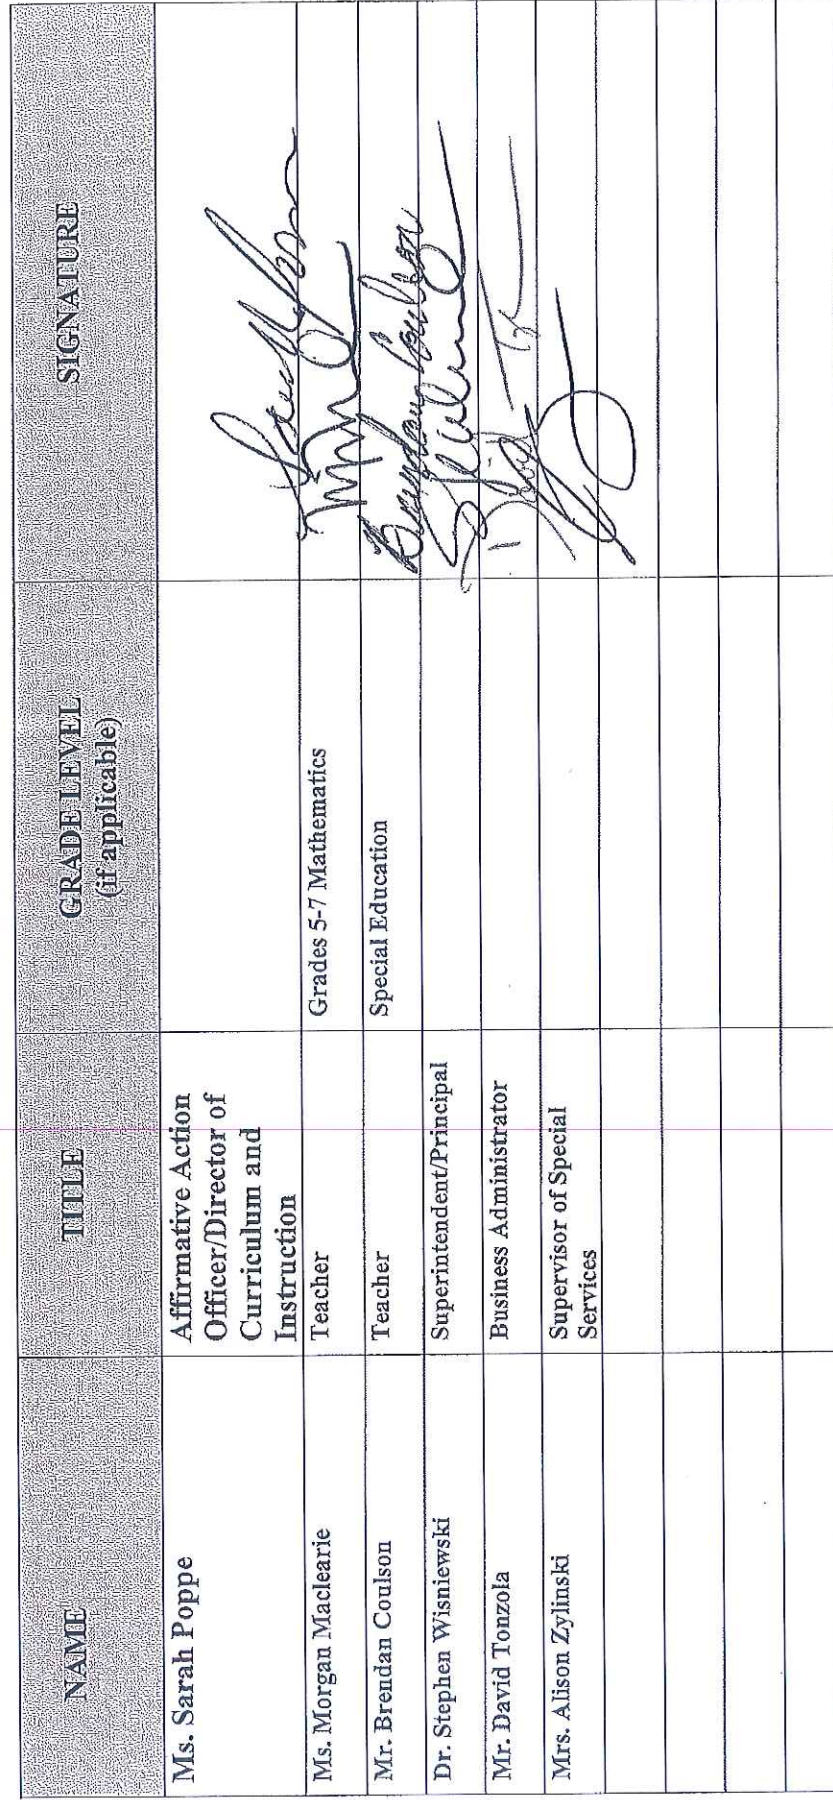 NAME
TITLE
GRADE LEVEL
(if applicable)
SIGNATURE
Ms. Sarah Poppe
Affirmative Action
Officer/Director of
Curriculum and
Instruction
Ms. Morgan Maclearie
Teacher
Grades 5-7 Mathematics
Mr. Brendan Coulson
Teacher
Special Education
Brendan Coulson
Dr. Stephen Wisniewski
Superintendent/Principal
Mr. David Tonzola
Business Administrator
David
Mrs. Alison Zylinski
Supervisor of Special
Services